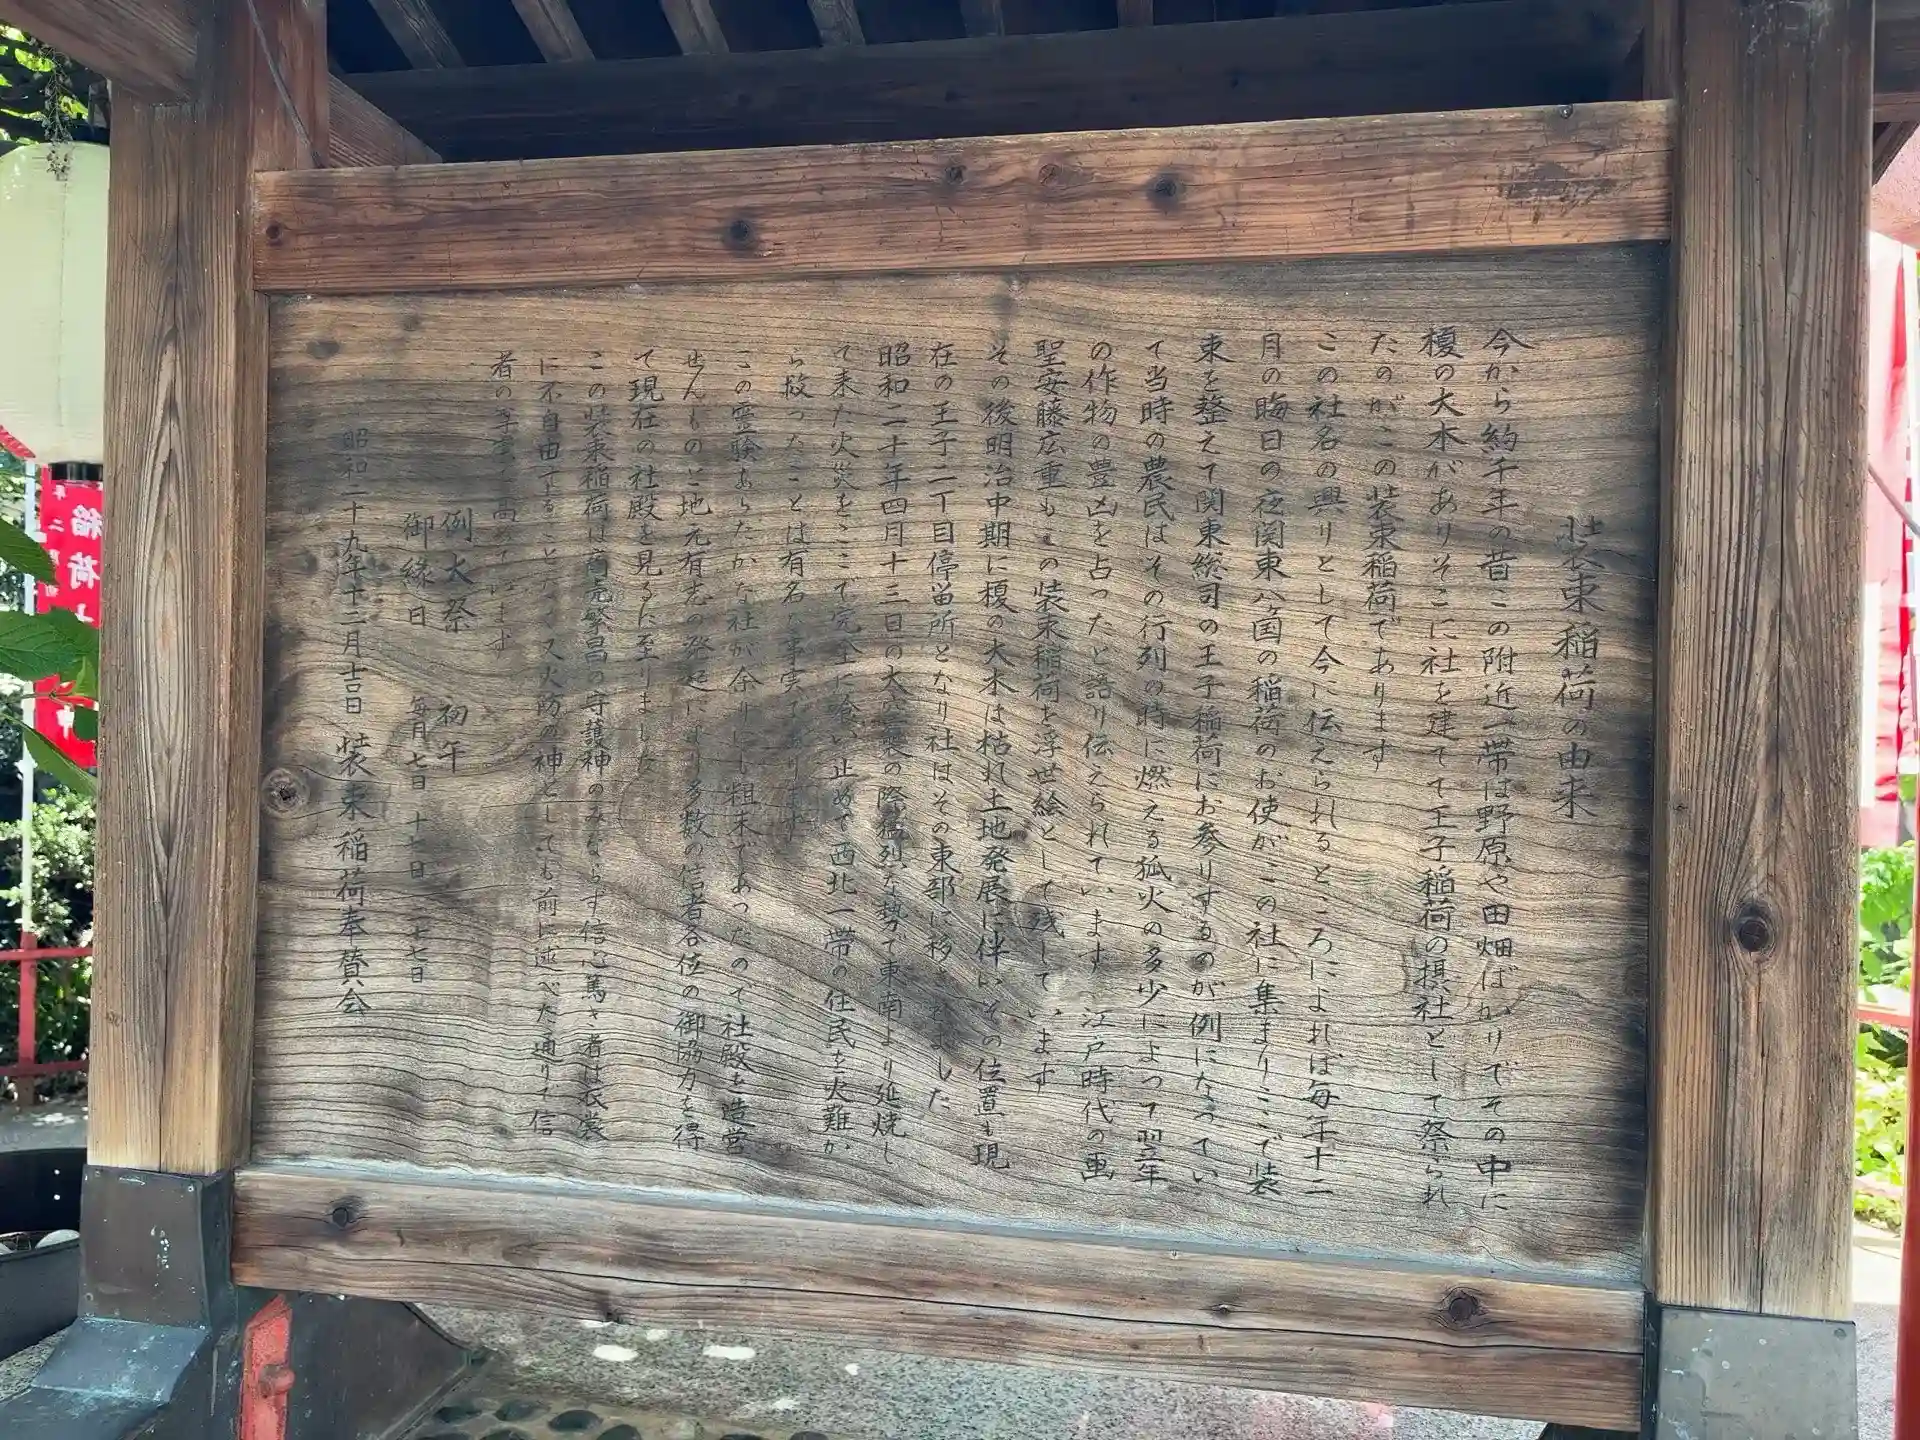 装束稲荷の由来
今から約千年の昔この附近一帯は野原や田畑ばかりでその中に
榎の大木がありそこに社を建てて王子稲荷の摂社として祭られ
たのがこの装束稲荷であります
この社名の興りとして今に伝えられるところによれば毎年十二
月の晦日の夜関東八ヶ国の稲荷のお使がこの社に集まりここで装
束を整えて関東総司の王子稲荷にお参りするのが例になってい
て当時の農民はその行列の時に燃える狐火の多少によって翌年
の作物の豊凶を占ったと語り伝えられています 江戸時代の画
聖安藤広重もこの装束稲荷を浮世絵として残しています
その後明治中期に榎の大木は枯れ土地発展に伴いその位置も現
在の王子二丁目停留所となり社はその東部に移されました
昭和二十年四月十三日の大空襲の際猛烈な勢で東南より延焼し
て来た火災をここで完全に喰い止めて西北一帯の住民を火難か
ら救ったことは有名な事実であります
この霊験あらたかな社が余りにも粗末であったので社殿を造営
せんものと地元有志の発起により多数の信者各位の御協力を得
て現在の社殿を見るに至りました
この装束稲荷は商売繁昌の守護神のみならず信心篤き者は衣裳
に不自由することなく又火防の神としても前に述べた通りで信
者の尊崇を高めています
例大祭 初午
御縁日 毎月 七日 十七日 二十七日
昭和二十九年十二月吉日 装束稲荷奉賛会
稲荷